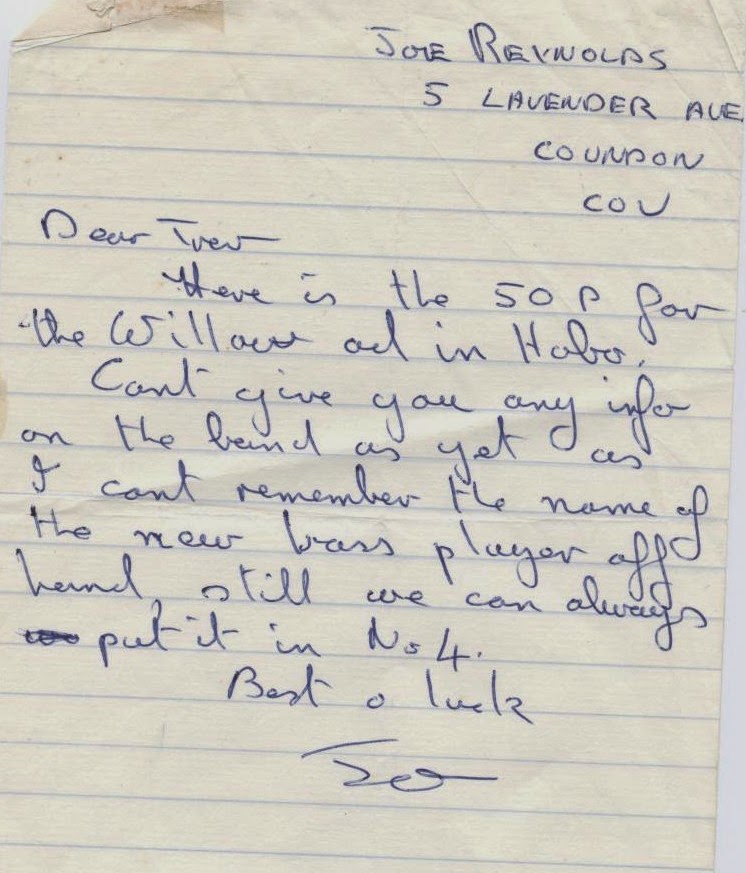 JOE REYNOLDS
5 LAVENDER AVE
COUNDON
COV
Dear Trev
Here is the 50 p for
the Willow ad in Hobo.
Cant give you any info
on the band as yet as
I cant remember the name of
the new brass player off
hand, still we can always
put it in No 4.
Best o luck
Joe